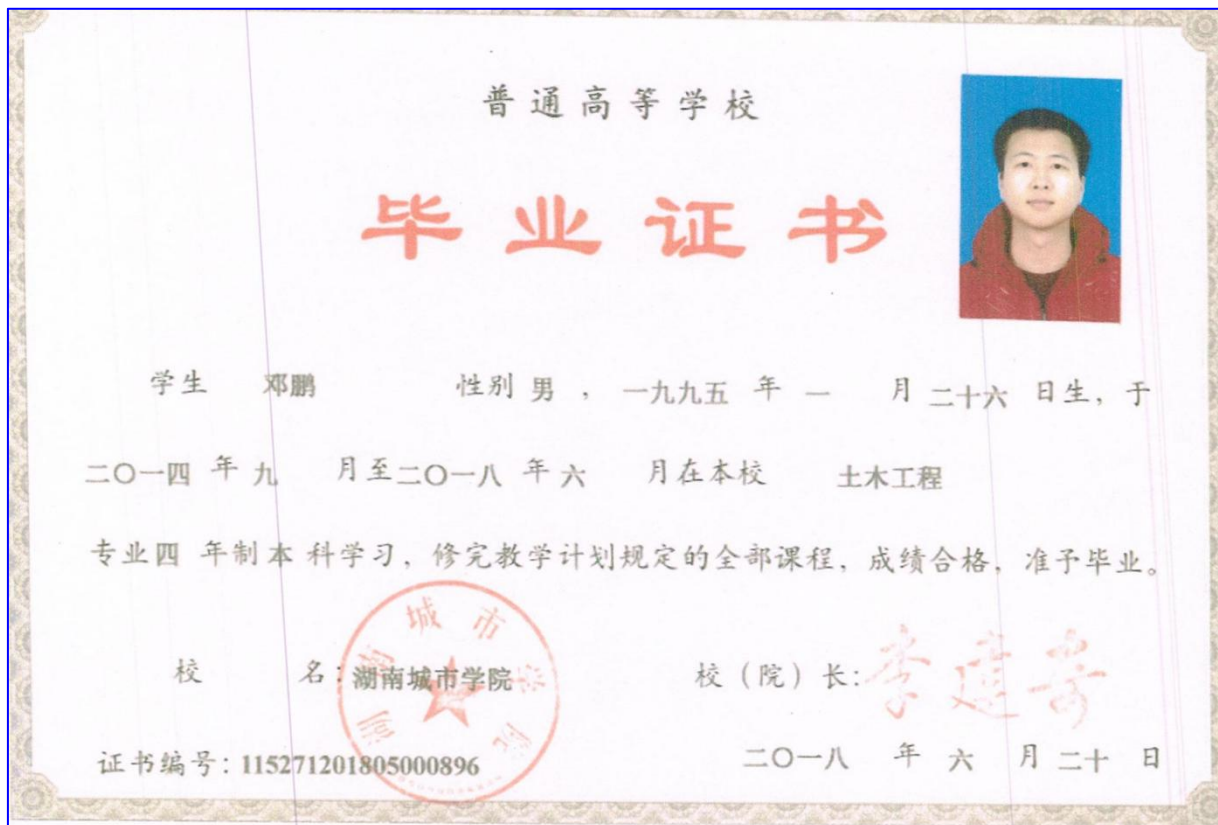 普通高等学校
毕业证书
学生 邓鹏 性别 男 , 一九九五 年 一 月 二十六 日生, 于
二〇一四 年 九 月至 二〇一八 年 六 月在本校 土木工程
专业 四 年制 本 科学习, 修完教学计划规定的全部课程, 成绩合格, 准予毕业。
湖南城市学院
校 名: 湖南城市学院 校（院）长: 李建奇
证书编号: 115271201805000896 二〇一八 年 六 月 二十 日